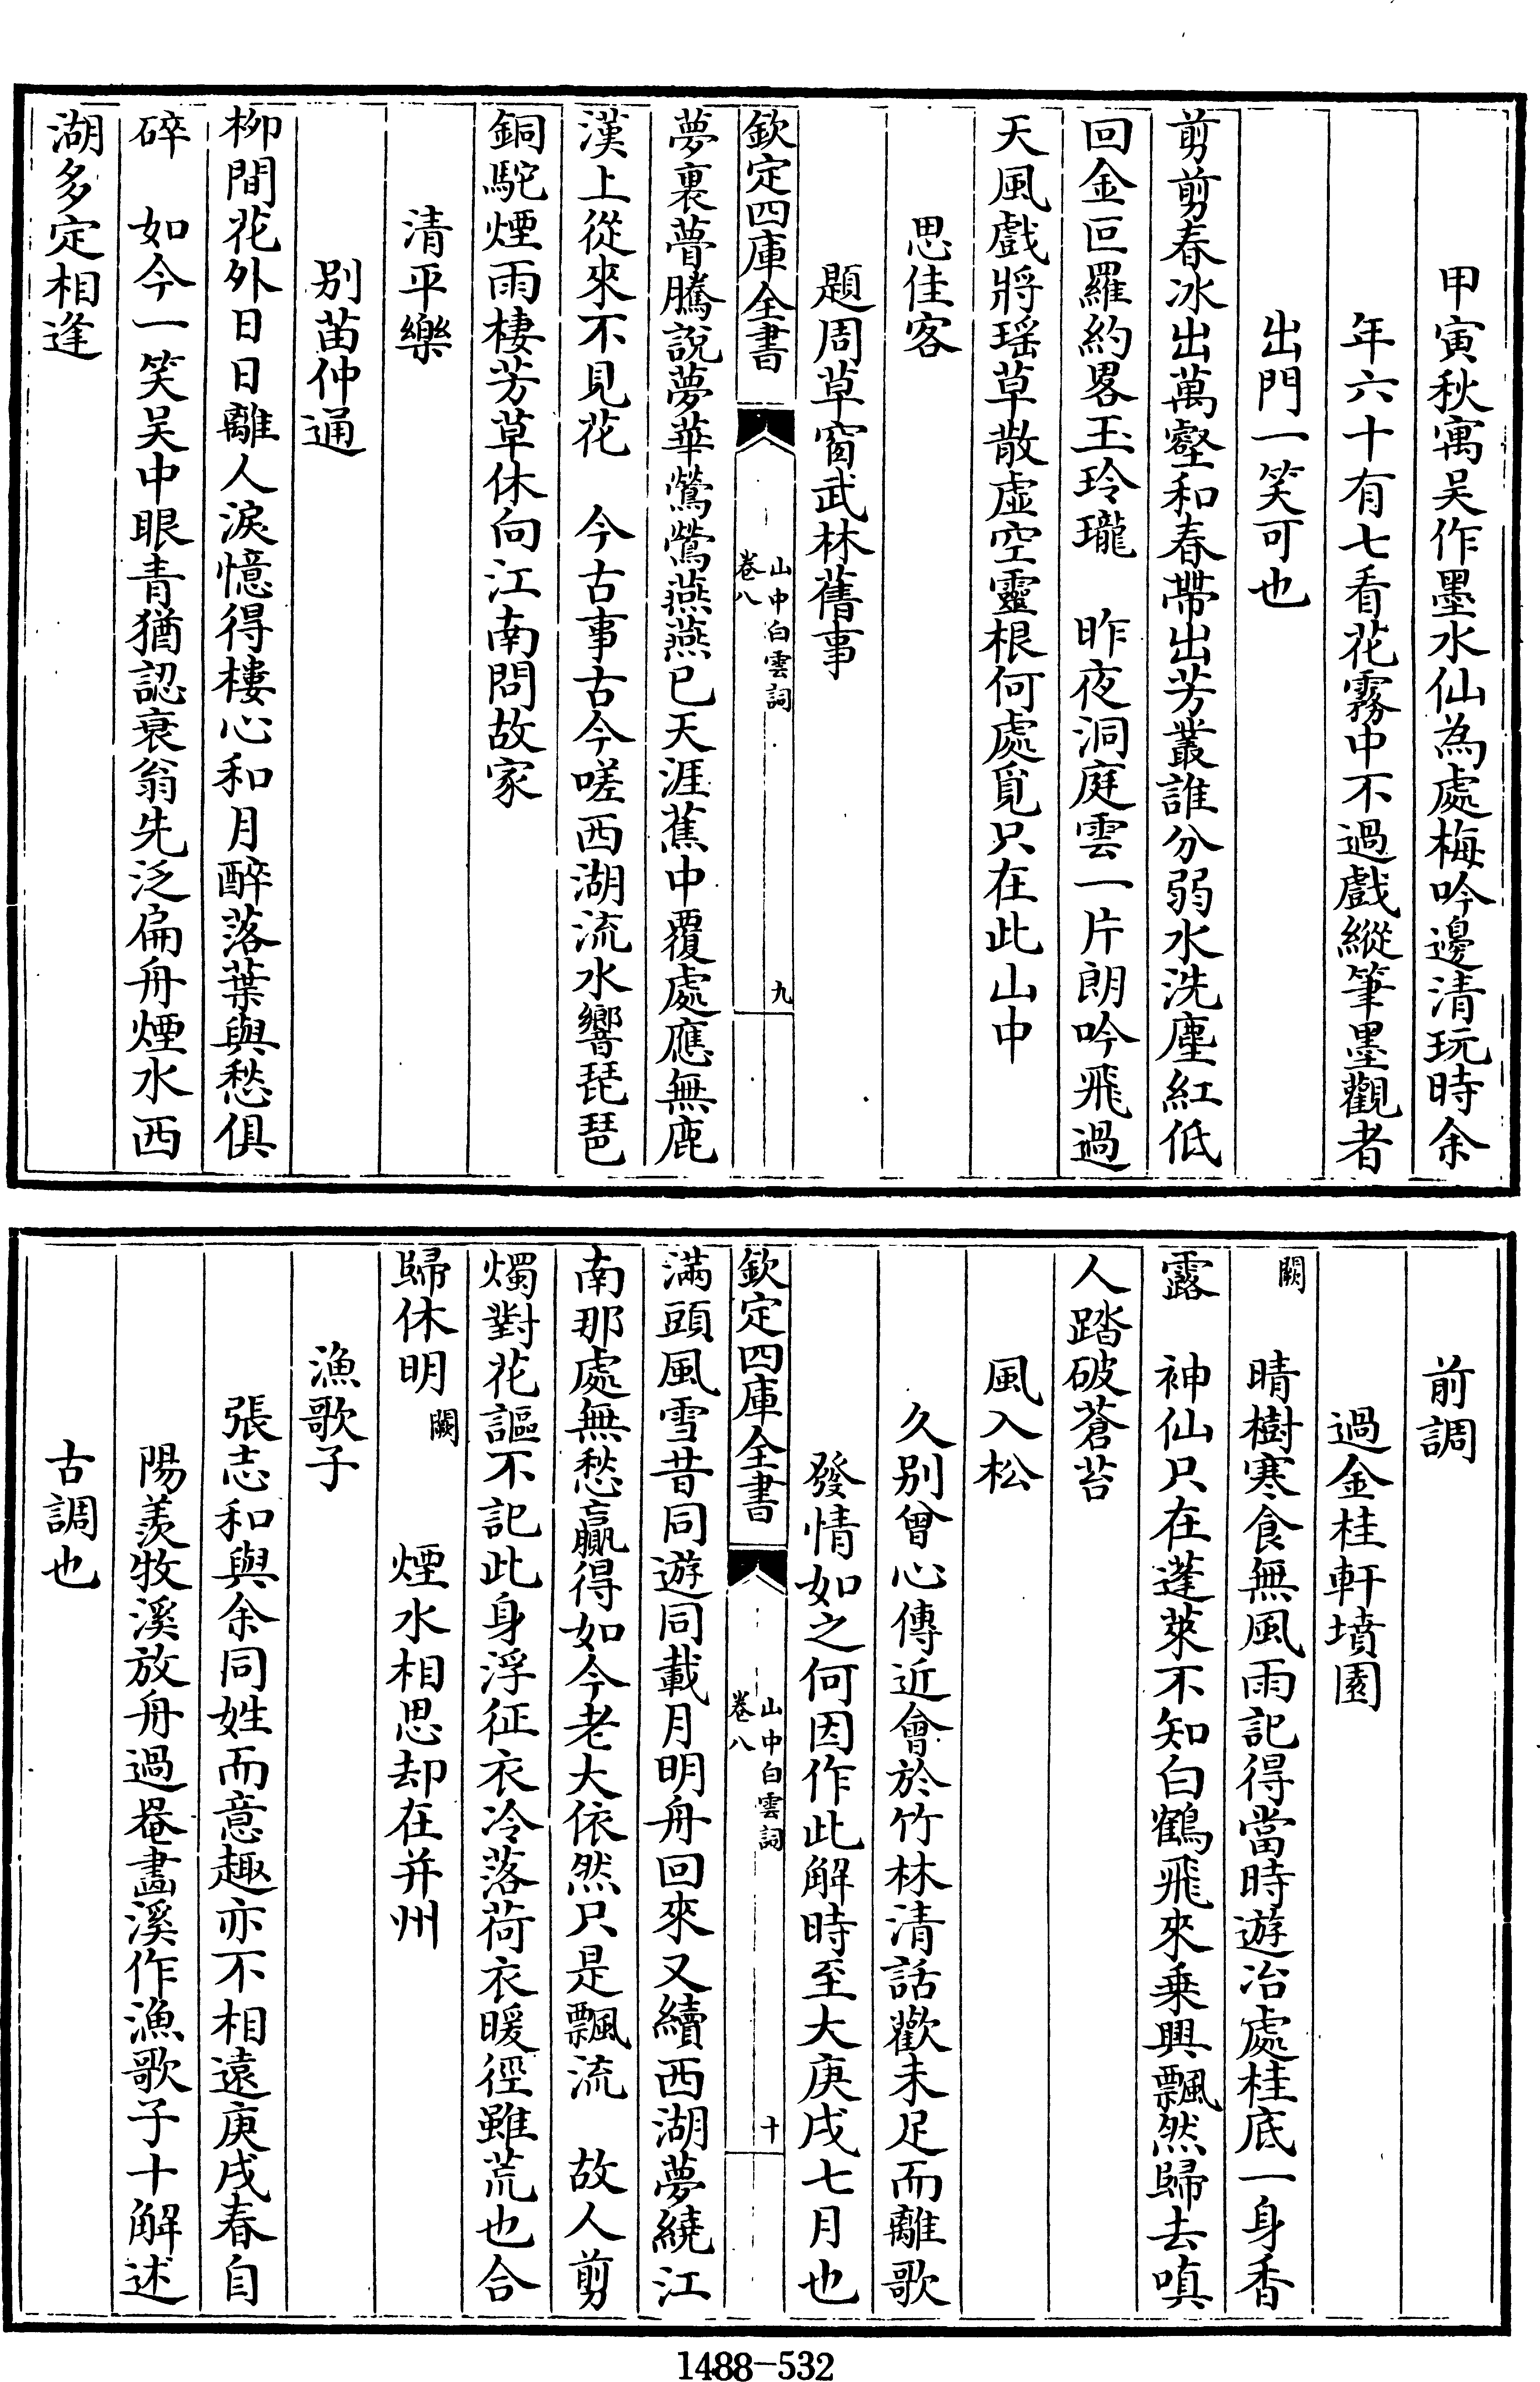 甲寅秋寓吴作墨水仙為處梅吟邊清玩時余
年六十有七看花霧中不過戲縱筆墨觀者
出門一笑可也
剪剪春冰出萬壑和春帶出芳叢誰分弱水洗塵紅低
回金叵羅約畧玉玲瓏　昨夜洞庭雲一片朗吟飛過
天風戲將瑶草散虚空靈根何處覓只在此山中
思佳客
題周草窗武林舊事
欽定四庫全書
山中白雲詞
卷八
九
夢裏瞢騰說夢華鶯鶯燕燕已天涯蕉中覆處應無鹿
漢上從來不見花　今古事古今嗟西湖流水響琵琶
銅駝煙雨棲芳草休向江南問故家
清平樂
别苗仲通
柳間花外日日離人淚憶得樓心和月醉落葉與愁俱
碎　如今一笑吴中眼青猶認衰翁先泛扁舟煙水西
湖多定相逢
前調
過金桂軒墳園
闕　晴樹寒食無風雨記得當時遊冶處桂底一身香
露　神仙只在蓬萊不知白鶴飛來乗興飄然歸去嗔
人踏破蒼苔
風入松
久别曾心傳近會於竹林清話歡未足而離歌
發情如之何因作此解時至大庚戌七月也
欽定四庫全書
山中白雲詞
卷八
十
滿頭風雪昔同遊同載月明舟回來又續西湖夢繞江
南那處無愁贏得如今老大依然只是飄流　故人剪
燭對花謳不記此身浮征衣冷落荷衣暖徑雖荒也合
歸休明闕　煙水相思却在并州
漁歌子
張志和與余同姓而意趣亦不相遠庚戌春自
陽羡牧溪放舟過罨畫溪作漁歌子十解述
古調也
1488-532